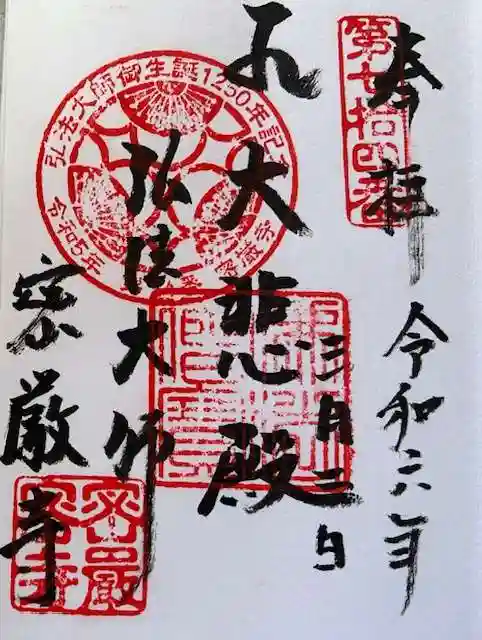 奉拝
令和六年
三月三日
大悲殿
弘法大師
密厳寺
第七拾四番
弘法大師御生誕1250年記
令和5年
密厳寺
密嚴
寺